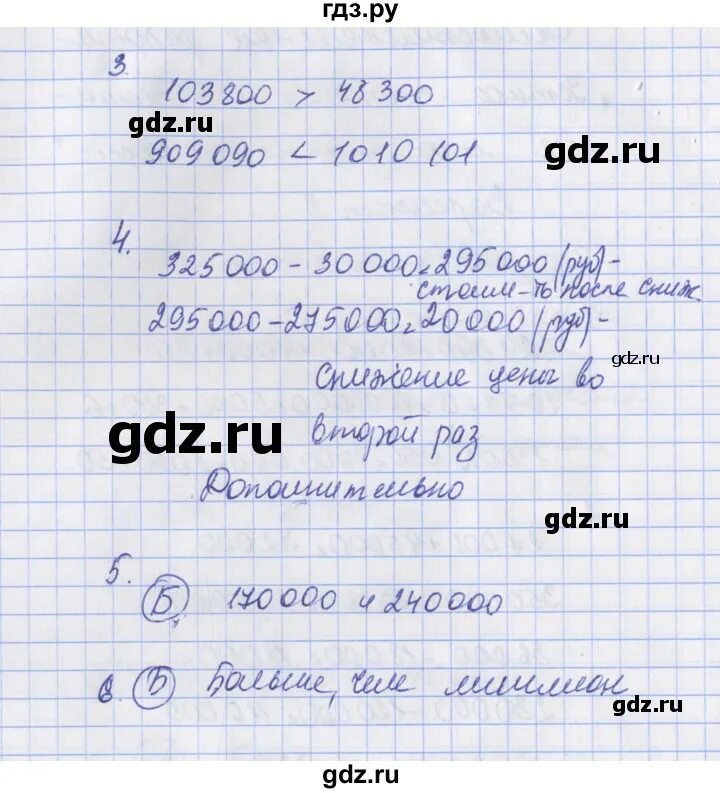 гдз.ру
3.
103800 > 48300
gdz.ru
gdz.ru
909090 < 1010101
4.
325000 - 30000 = 295000 (руб) -
стоим-ть после сниж.
295000 - 275000 = 20000 (руб) -
gdz.ru
снижение цены во
gdz.ru
второй раз
Дополнительно
gdz.ru
5.
Б 170000 и 240000
6. Б Больше, чем миллион
gdz.ru
gdz.ru